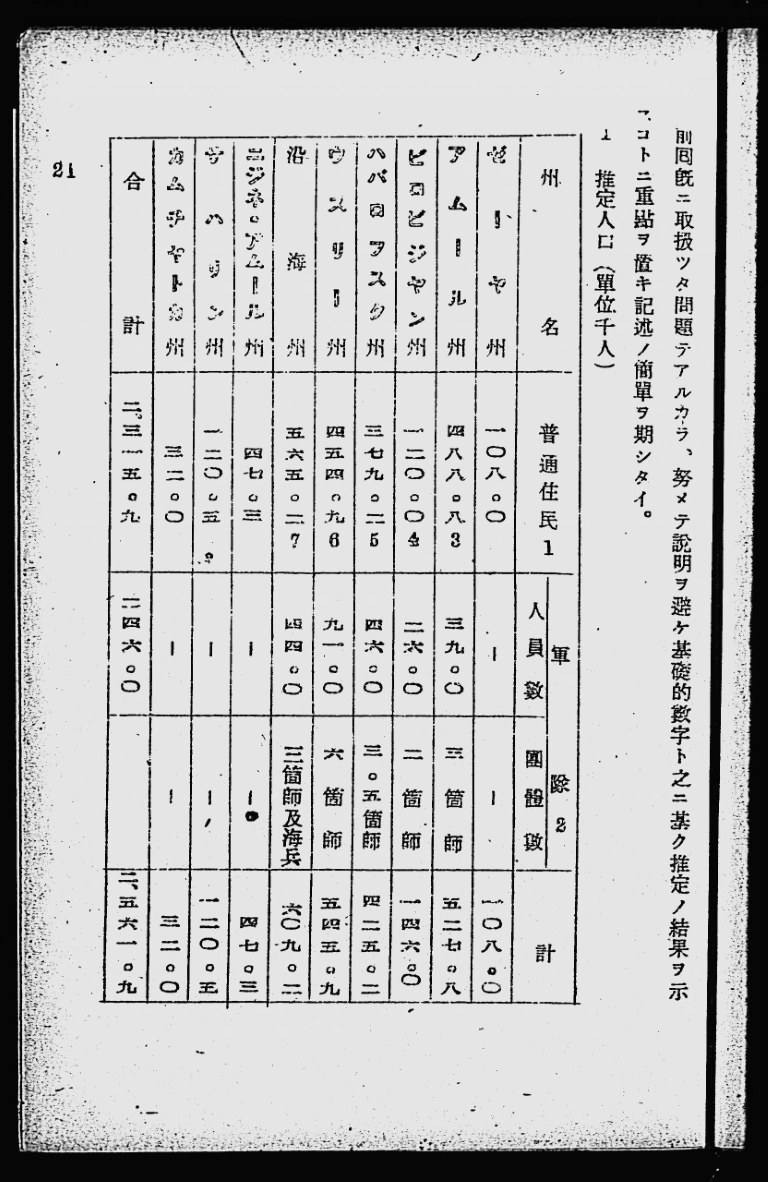 前囘既ニ取扱ツタ問題デアルカラ、努メテ說明ヲ避ケ基礎的數字ト之ニ基ク推定ノ結果ヲ示
スコトニ重點ヲ置キ記述ノ簡單ヲ期シタイ。
1 推定人口(單位千人)
州名 普通住民1 軍隊2 人員數 團體數 計
ゼーヤ州 一〇八。〇 ー ー 一〇八。〇
アムール州 四八八。八3 三九。〇 三箇師 五二七。八
ビロビジヤン州 一二〇。〇4 二六。〇 二箇師 一四六。〇
ハバロフスク州 三七九。二5 四六。〇 三。五箇師 四二五。二
ウスリー州 四五四。九6 九一。〇 六箇師 五四五。九
沿海州 五六五。二7 四四。〇 三箇師及海兵 六〇九。二
ニジネ。アムール州 四七。三 ー ー 四七。三
サハリン州 一二〇。五 ー ー 一二〇。五
カムチヤトカ州 三二。〇 ー ー 三二。〇
合計 二、三一五。九 二四六。〇 二、五六一。九
21